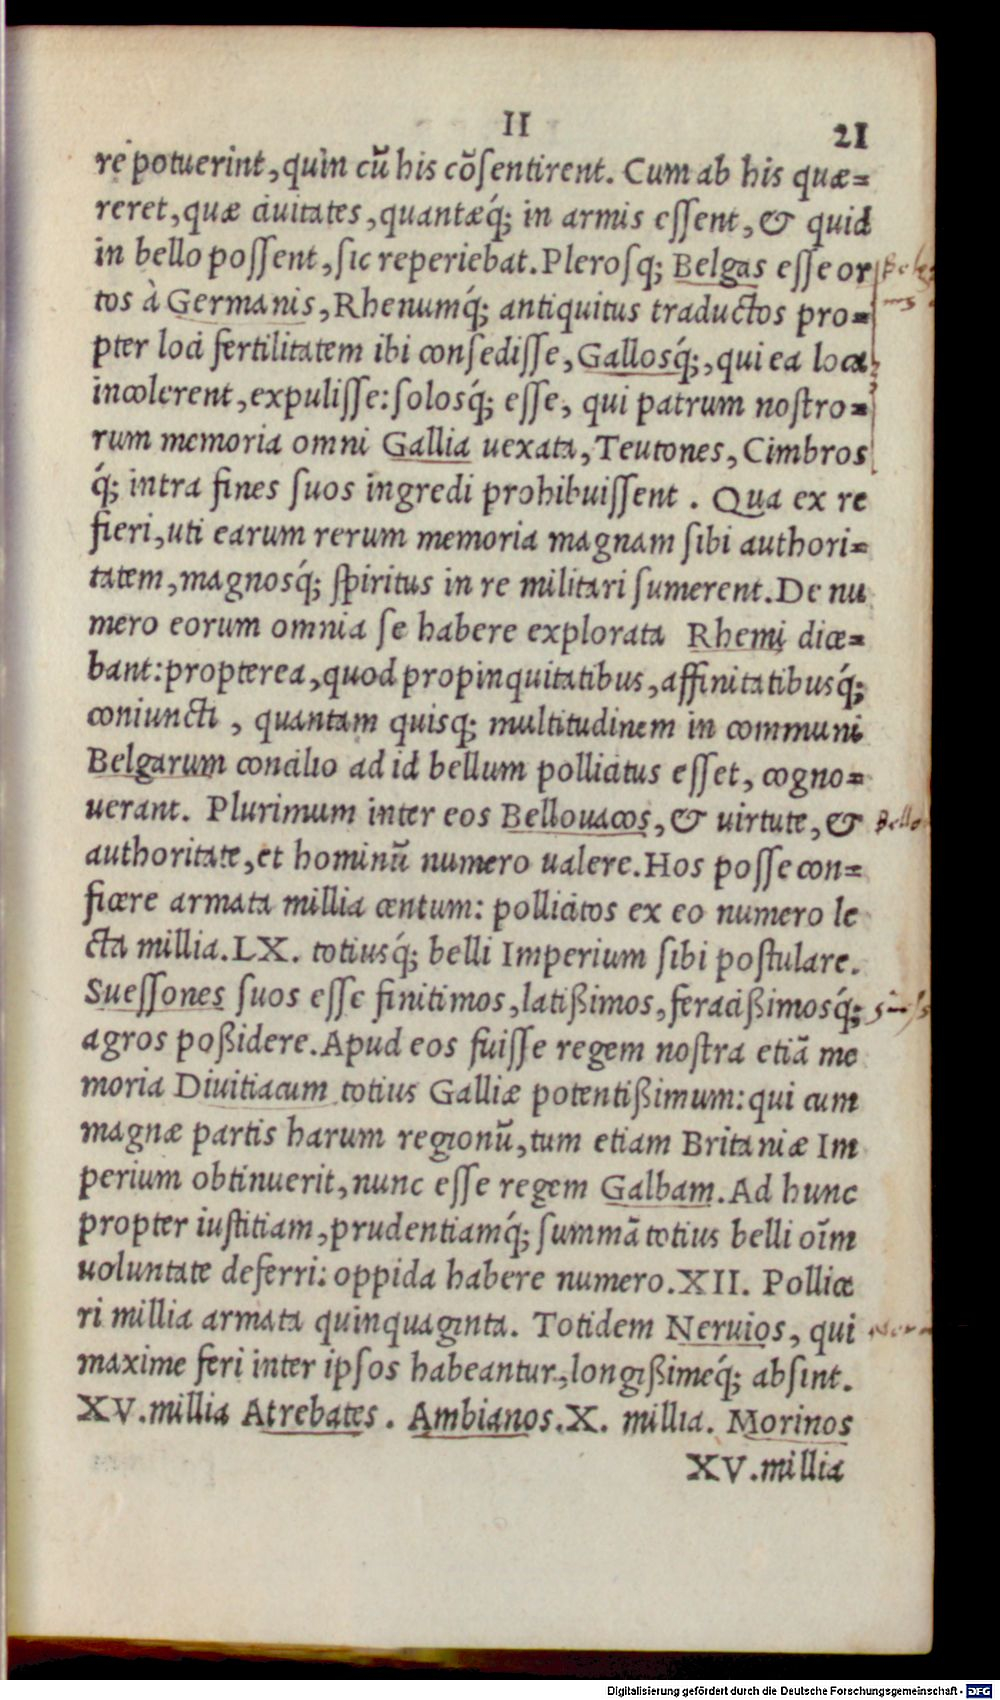 II
21
re potuerint, quin cũ his cõſentirent. Cum ab his quæ=
reret, quæ ciuitates, quantæq́; in armis eſſent, & quid
in bello poſſent, ſic reperiebat. Pleroſq; Belgas eſſe or
tos à Germanis, Rhenumq́; antiquitus traductos pro=
pter loci fertilitatem ibi conſediſſe, Galloſq́;, qui ea loca
incolerent, expuliſſe: ſoloſq́; eſſe, qui patrum noſtro=
rum memoria omni Gallia uexata, Teutones, Cimbros
q́; intra fines ſuos ingredi prohibuiſſent. Qua ex re
fieri, uti earum rerum memoria magnam ſibi authori=
tatem, magnoſq́; ſpiritus in re militari ſumerent. De nu
mero eorum omnia ſe habere explorata Rhemi dice=
bant: propterea, quod propinquitatibus, affinitatibusq́;
coniuncti, quantam quisq; multitudinem in communi
Belgarum concilio ad id bellum pollicitus eſſet, cogno=
uerant. Plurimum inter eos Bellouacos, & uirtute, &
authoritate, et hominũ numero ualere. Hos poſſe con=
ficere armata millia centum: pollicitos ex eo numero le
cta millia. LX. totiusq́; belli Imperium ſibi poſtulare.
Sueſſones ſuos eſſe finitimos, latißimos, feracißimosq́;
agros poßidere. Apud eos fuiſſe regem noſtra etiã me
moria Diuitiacum totius Galliæ potentißimum: qui cum
magnæ partis harum regionũ, tum etiam Britaniæ Im
perium obtinuerit, nunc eſſe regem Galbam. Ad hunc
propter iuſtitiam, prudentiamq́; ſummã totius belli oĩm
uoluntate deferri: oppida habere numero. XII. Pollice
ri millia armata quinquaginta. Totidem Neruios, qui
maxime feri inter ipſos habeantur, longißimeq́; abſint.
XV. millia Atrebates. Ambianos. X. millia. Morinos
XV. millia
Digitalisierung gefördert durch die Deutsche Forschungsgemeinschaft - DFG